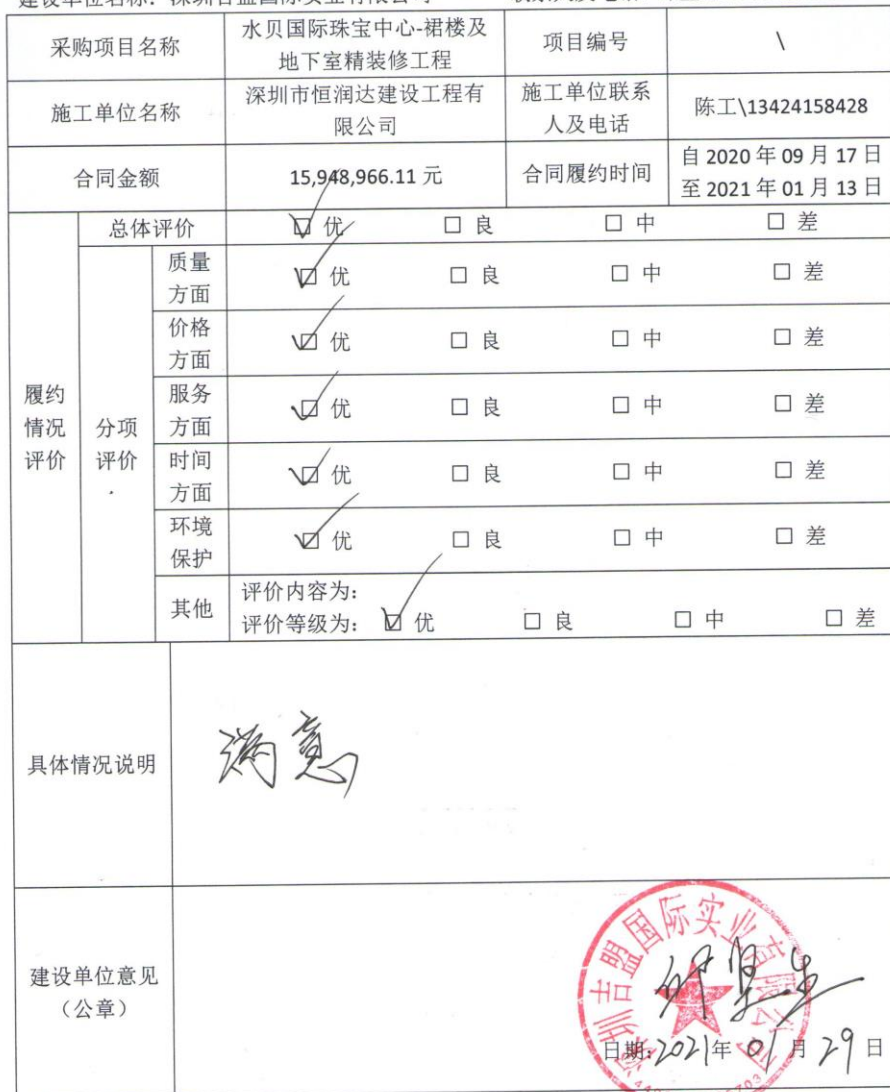 建设单位名称：深圳吉盟国际实业有限公司
采购项目名称 水贝国际珠宝中心-裙楼及地下室精装修工程 项目编号 \
施工单位名称 深圳市恒润达建设工程有限公司 施工单位联系人及电话 陈工\13424158428
合同金额 15,948,966.11 元 合同履约时间 自 2020 年 09 月 17 日
至 2021 年 01 月 13 日
履约情况评价
总体评价 ☑ 优 □ 良 □ 中 □ 差
分项评价
质量方面 ☑ 优 □ 良 □ 中 □ 差
价格方面 ☑ 优 □ 良 □ 中 □ 差
服务方面 ☑ 优 □ 良 □ 中 □ 差
时间方面 ☑ 优 □ 良 □ 中 □ 差
环境保护 ☑ 优 □ 良 □ 中 □ 差
其他 评价内容为：
评价等级为： ☑ 优 □ 良 □ 中 □ 差
具体情况说明 满意
建设单位意见
（公章）
深圳吉盟国际实业有限公司
日期:2021年 01 月 29 日